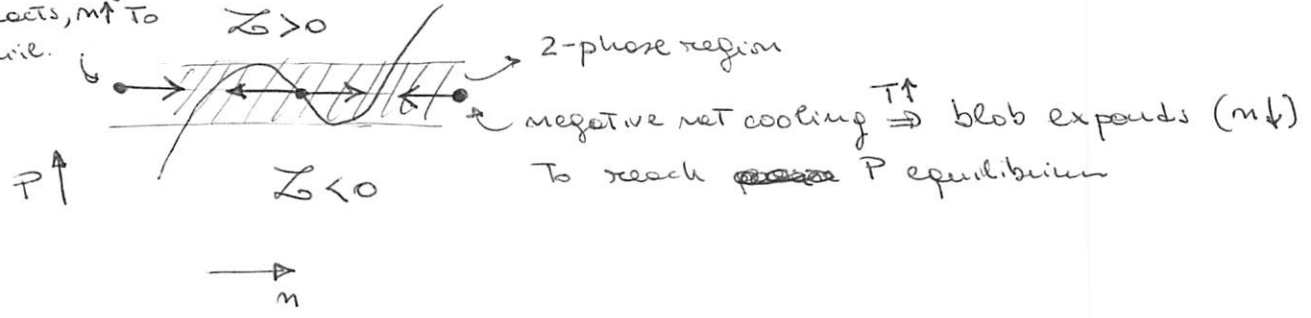 acts, n↑ to
ℒ>0
2-phase region
negative net cooling T↑ ⇒ blob expands (n↓)
to reach P equilibrium
P↑
ℒ<0
n